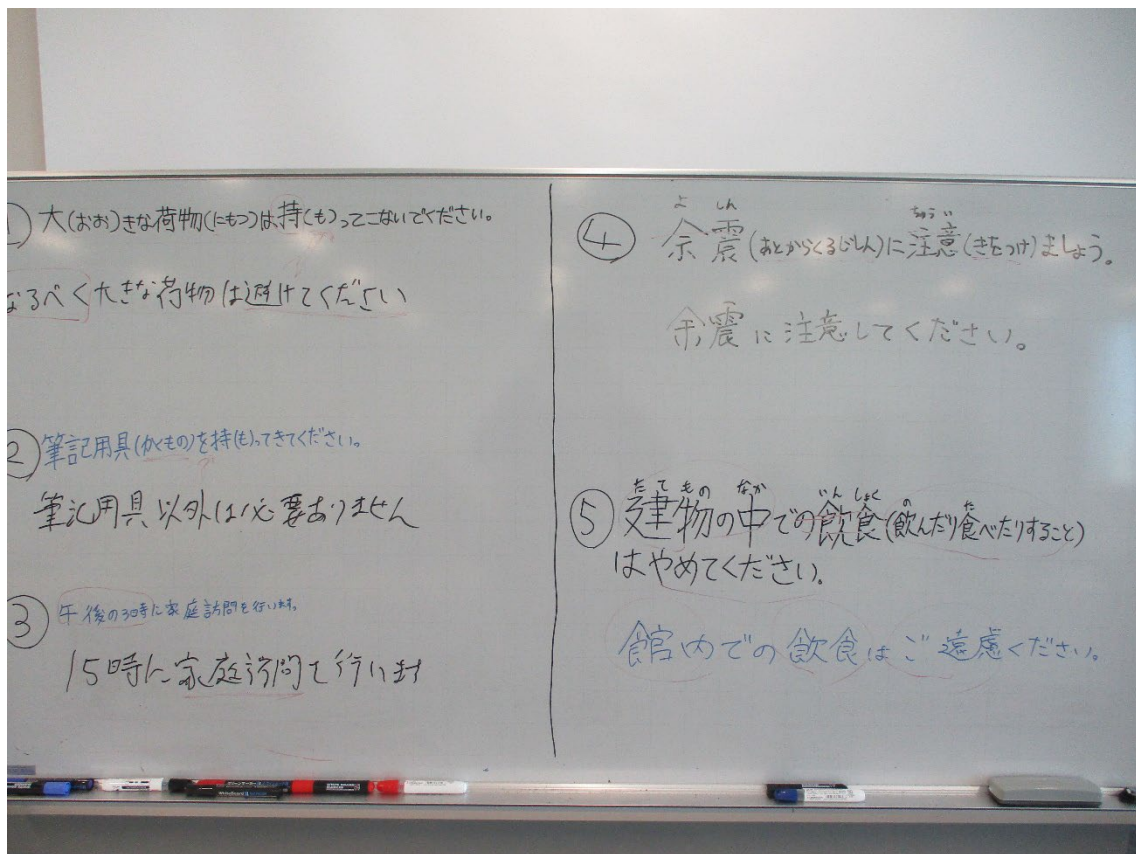 ① 大(おお)きな荷物(にもつ)は持(も)ってこないでください。
なるべく大きな荷物は避けてください
② 筆記用具(かくもの)を持(も)ってきてください。
筆記用具以外は必要ありません
③ 午後の3時に家庭訪問を行います。
15時に家庭訪問を行います
よ しん ちゅうい
④ 余震(あとからくるじしん)に注意(きをつけ)ましょう。
余震に注意してください。
たてもの なか いんしょく の た
⑤ 建物の中での飲食(飲んだり食べたりすること)
はやめてください。
館内での飲食はご遠慮ください。